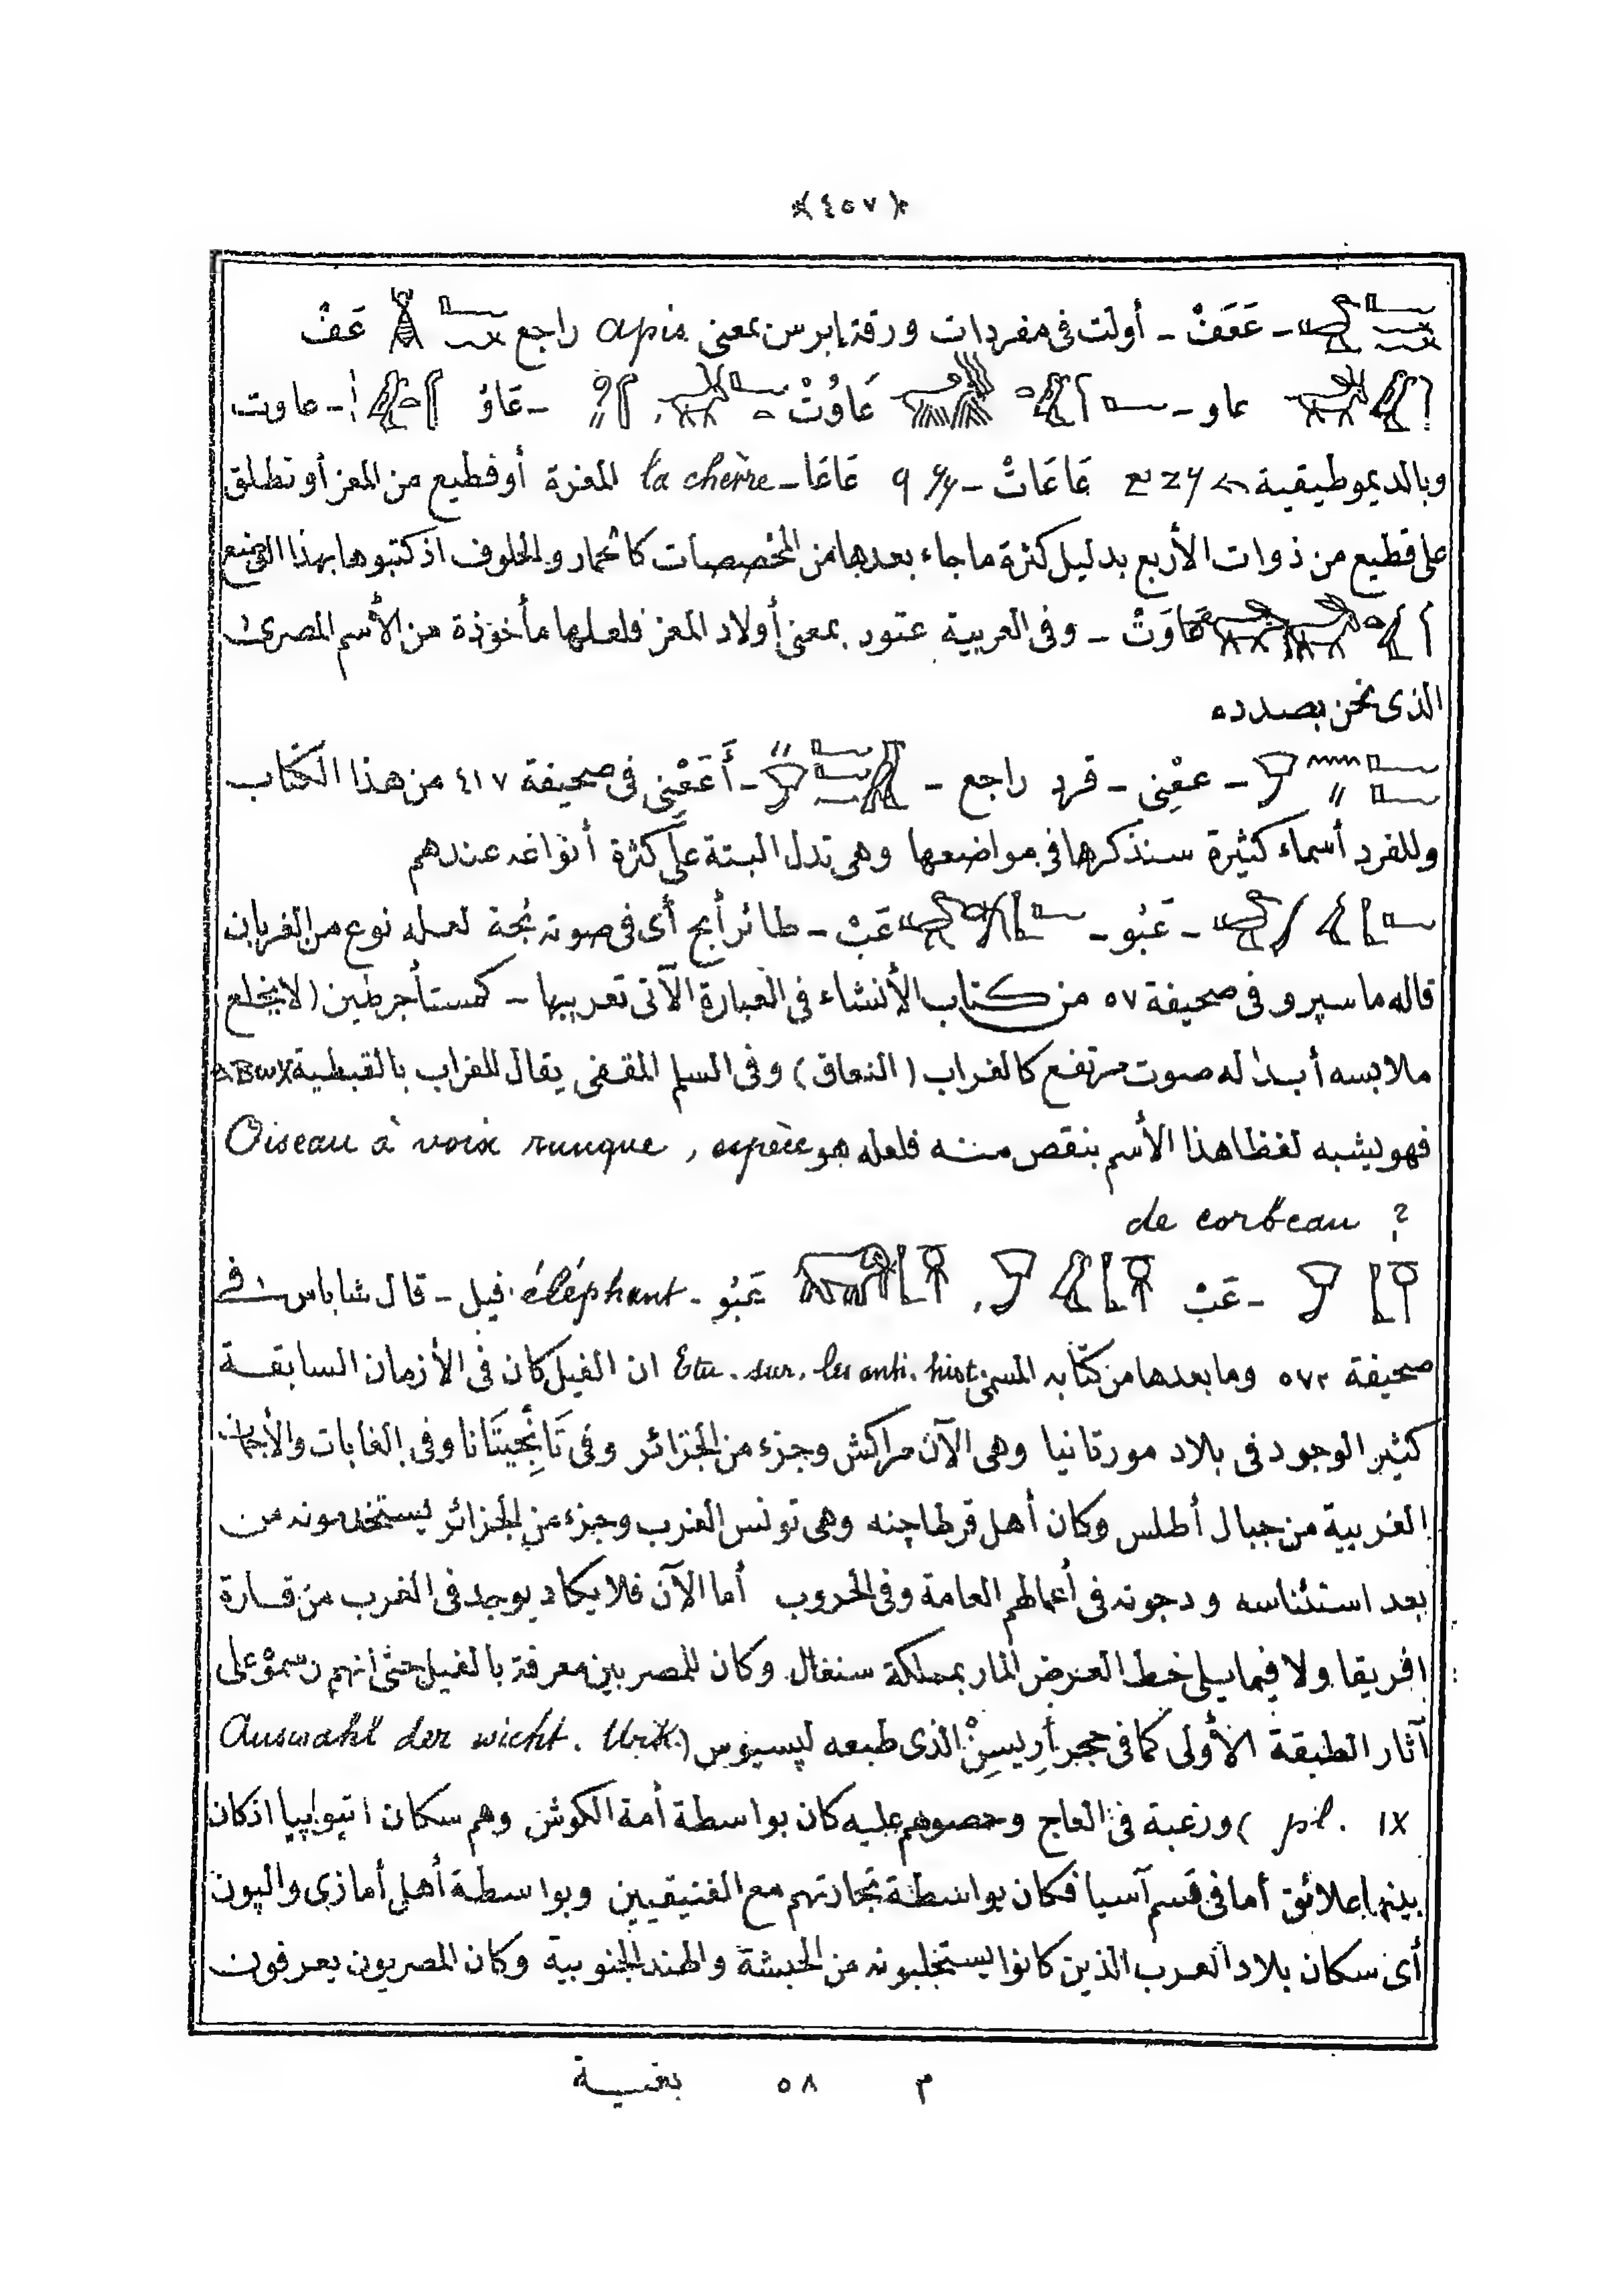 ﴿٤٥٧﴾
ـ عَعَفْ ـ أولت فى مفردات ورقة إبرس بمعنى apis راجع عَفْ
عاو ـ عَاوُتْ ـ عَاوُ ـ عاوت
وبالديموطيقية عَاعَاتْ ـ عَاعَا ـ la chèvre للعنزة أو قطيع من المعز أو تطلق
على قطيع من ذوات الأربع بدليل كثرة ما جاء بعدها من المخصصات كالحمار والخلوف اذ كتبوها بهذا الوضع
عَاوَتْ ـ وفى العربية عتود بمعنى أولاد المعز فلعلها مأخوذة من الأسم المصرى
الذى نحن بصدده
ـ عفْنِى ـ قرد راجع ـ أَعَفْنِى فى صحيفة ٤١٧ من هذا الكتاب
وللقرد أسماء كثيرة سنذكرها فى مواضعها وهى تدل البتة على كثرة أنواعه عندهم
ـ عَبُو ـ عَبْ ـ طائر أبح أى فى صوته بُحة لعله نوع من الغربان
قاله ماسپرو فى صحيفة ٥٧ من كتاب الأنشاء فى العبارة الآتى تعريبها ـ كمستأجر طين (لا يخلع
ملابسه أبدا له صوت مرتفع كالغراب (النعاق) وفى السلم المقفى يقال للغراب بالقبطية ⲁⲃⲱⲕ
فهو يشبه لفظا هذا الأسم بنقص منه فلعله هو Oiseau à voix rauque, espèce
de corbeau ?
ـ عَبْ عَبُو ـ éléphant فيل ـ قال شاباس فى
صحيفة ٥٧٢ وما بعدها من كتابه المسمى Etu. sur. les anti. hist ان الفيل كان فى الأزمان السابقة
كثير الوجود فى بلاد مورتانيا وهى الآن مراكش وجزء من الجزائر وفى تَانْجِيتَانا وفى الغابات والأجمات
الغربية من جبال أطلس وكان أهل قرطاچنه وهى تونس الغرب وجزء من الجزائر يستخدمونه من
بعد استئناسه ودجونه فى أعمالهم العامة وفى الحروب أما الآن فلا يكاد يوجد فى الغرب من قارة
افريقا ولا فيما يلى خط العرض المار بمملكة سنغال وكان للمصريين معرفة بالفيل حتى انهم رسموه على
آثار الطبقة الأولى كما فى حجر الذى طبعه ليسيوس (Auswahl der wicht. Urk.
pl. IX) ورغبة فى العاج وحصولهم عليه كان بواسطة أمة الكوش وهم سكان اتيوبيا اذ كان
بينهما علائق أما فى قسم آسيا فكان بواسطة تجارتهم مع الفنيقيين وبواسطة أهل أمازى واليون
أى سكان بلاد العرب الذين كانوا يستجلبونه من الحبشة والهند الجنوبية وكان المصريون يعرفون
م ٥٨ بغية